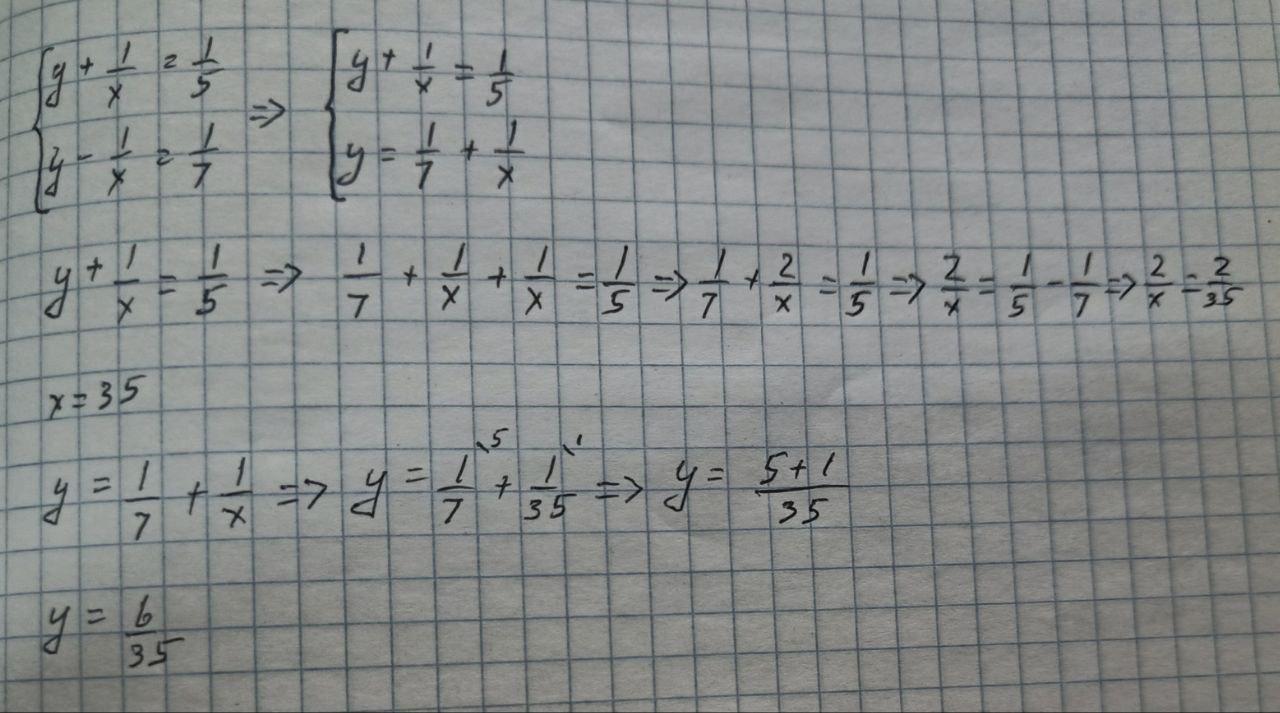 { y + 1/x = 1/5 ⇒ { y + 1/x = 1/5
{ y - 1/x = 1/7 { y = 1/7 + 1/x
y + 1/x = 1/5 ⇒ 1/7 + 1/x + 1/x = 1/5 ⇒ 1/7 + 2/x = 1/5 ⇒ 2/x = 1/5 - 1/7 ⇒ 2/x = 2/35
x = 35
y = 1/7 + 1/x ⇒ y = 1/7 \5 + 1/35 \1 ⇒ y = (5+1)/35
y = 6/35